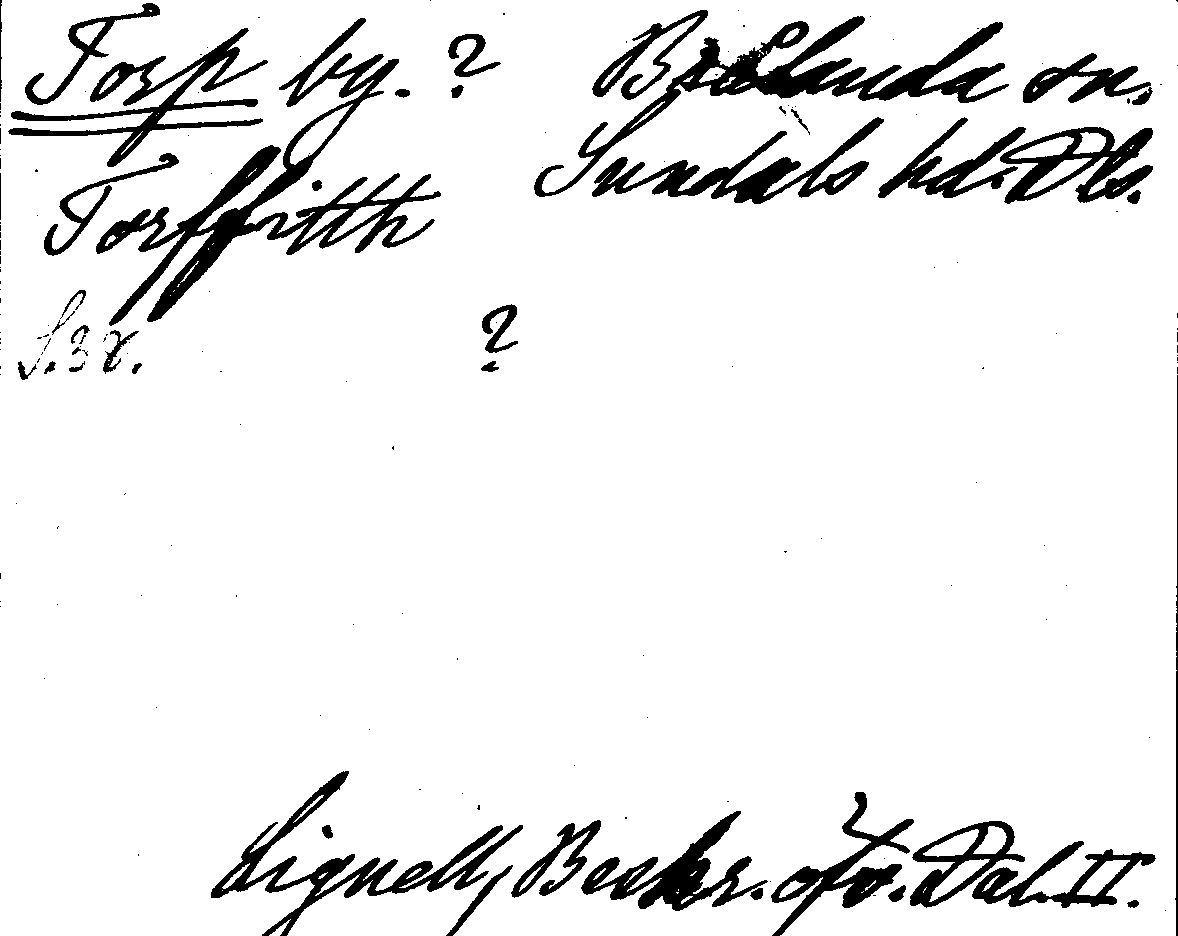 Torp by. ? Brålanda sn.
Sundals hd. Dls.
Torffsitth
S. 38. ?
Lignell, Beskr. öfv. Dal. II.